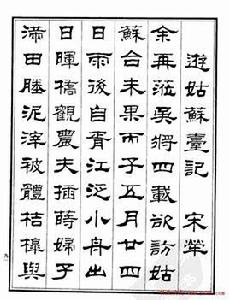 遊姑蘇臺記 宋犖
余再蒞吳將四載欲訪姑
蘇台未果丙子五月廿四
日雨後自胥江泛小舟出
日暉橋觀農夫插蒔婦子
滿田塍泥滓被體桔槔與